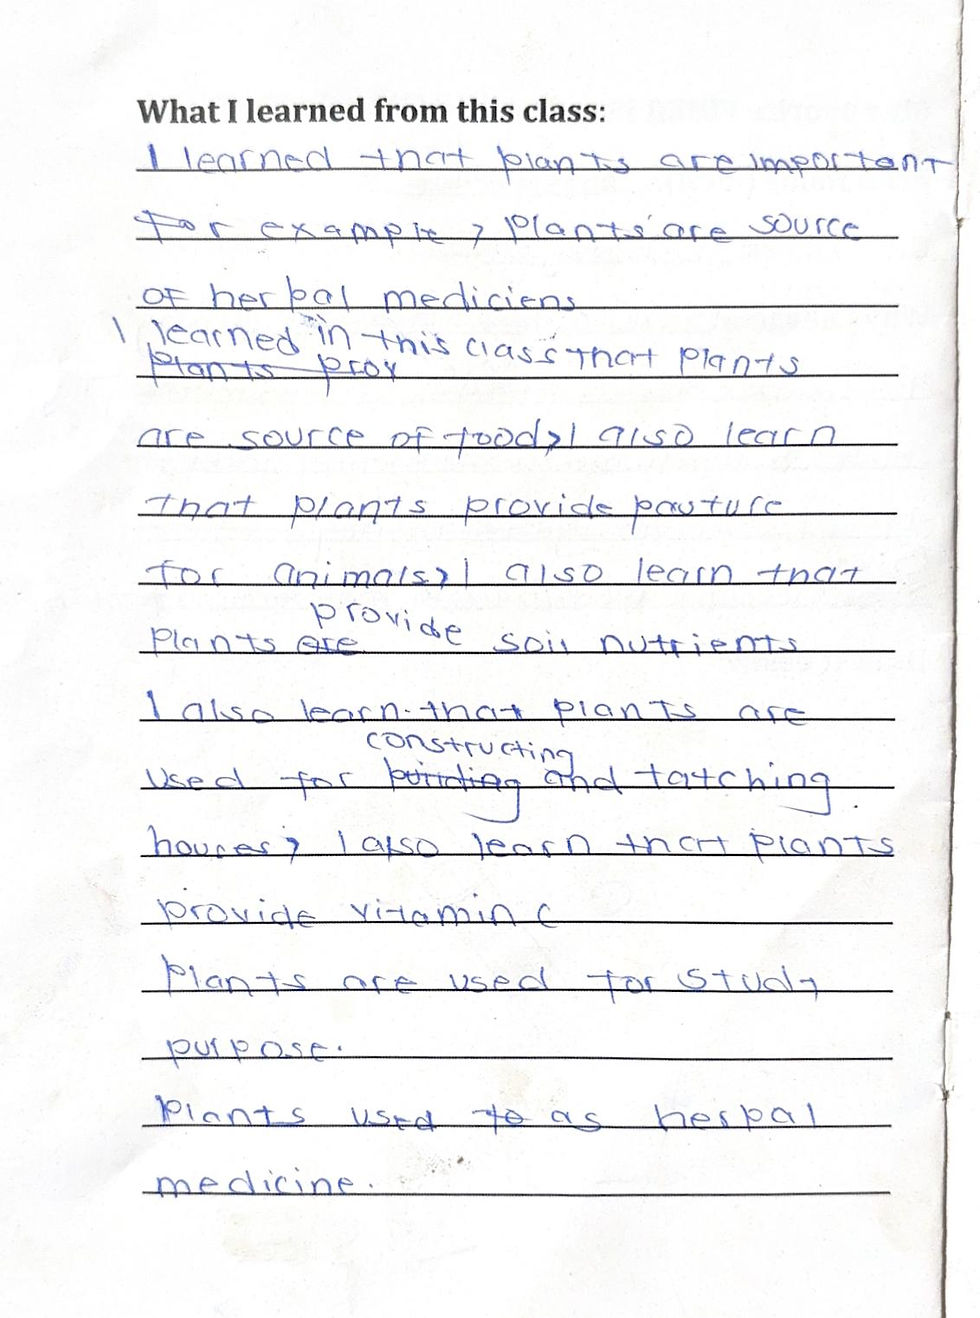 What I learned from this class:
I learned that plants are important
for example, Plants are source
of herbal mediciens
I learned in this class that plants
Plants prov
are source of food, I also learn
that plants provide pauture
for animals, I also learn that
provide
Plants are soil nutrients
I also learn that plants are
constructing
used for building and tatching
houses, I also learn that plants
provide vitamin C
Plants are used for study
purpose.
Plants used to as herbal
medicine.